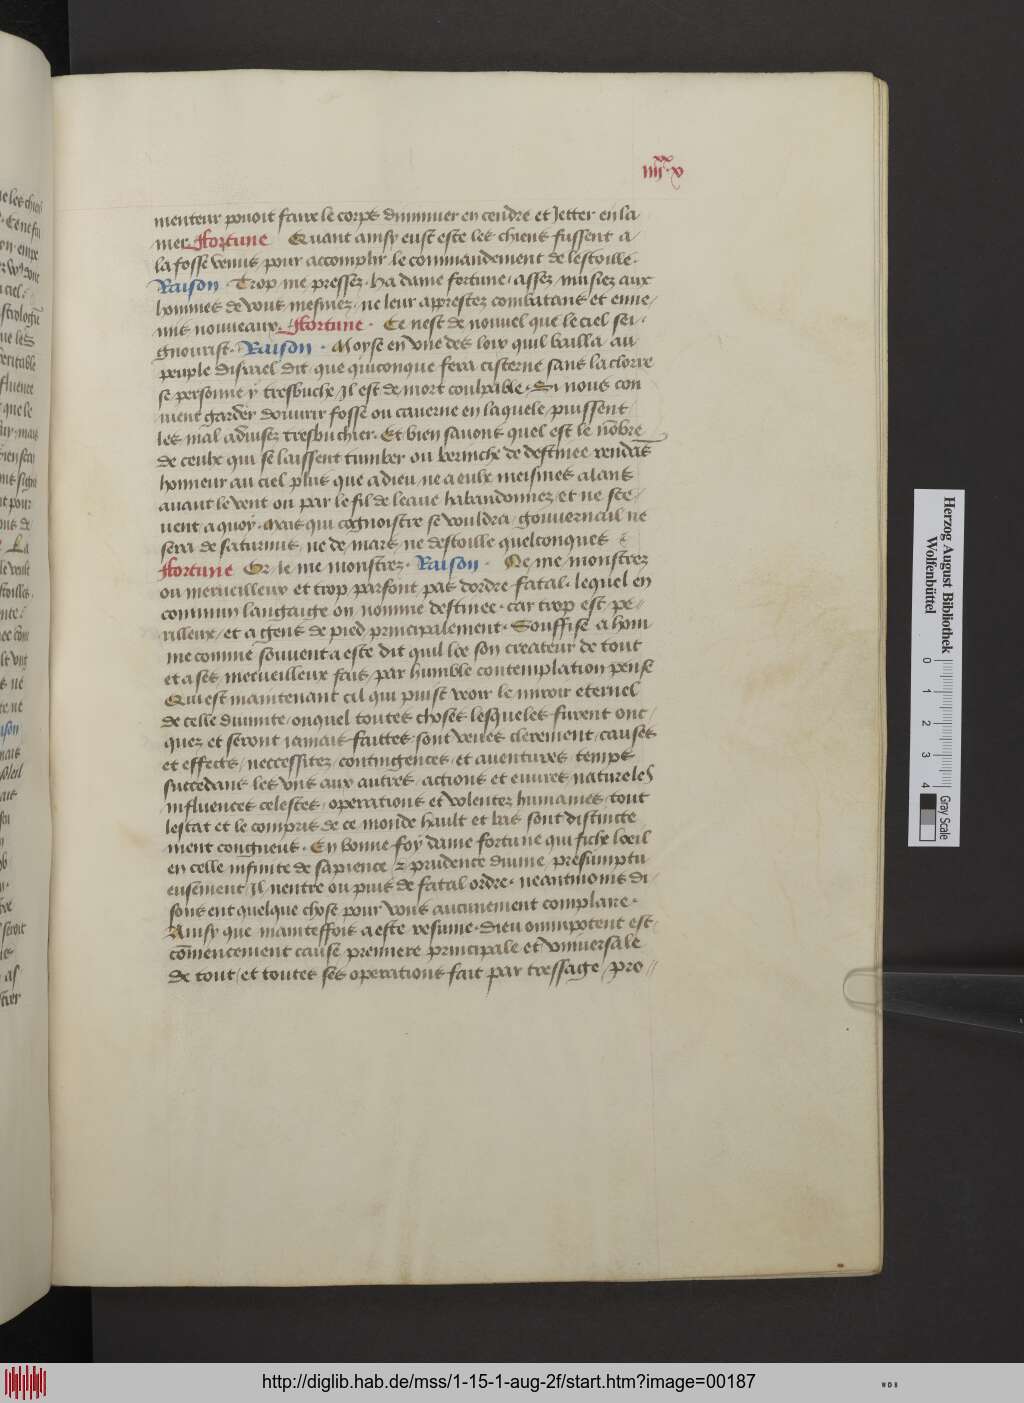 iiii xx . v
menteur pouoit faire le corps diminuer en cendre et Jetter en la
mer ffortune Quant ainsy eust este les chiens fussent a
la fosse venus pour accomplir le commandement de lestoille .
Raison . Trop me pressez . ha dame fortune . assez nuisiez aux
hommes de vous mesmez . ne leur apprestez combatans et enne/
mis nouueaux . ffortune . Ce nest de nouuel que le ciel sei .
gnourist . Raison . Moyse en vne des loix quil bailla au
peuple disrael dit . que quiconque fera cisterne sans la clorre
se personne y tresbuche Jl est de mort coulpable . Si nous con
uient garder douurir fosse ou cauerne en laquele puissent
les mal aduisez tresbuchier . Et bien sauons quel est le nõbre
de ceulx qui se laissent tumber ou de destinee rendãs
honneur au ciel plus que a dieu / ne a eulx meismes alans
auant le vent ou par le fil de leaue habandonnez / et ne sce/
uent a quoy . Mais qui cognoistre se vouldra / gouuernail ne
sera de saturnus / ne de mars / ne destoille quelconques
ffortune Or le me monstrez . Raison . Ne me monstrez
ou merueilleux et trop parfont pas dordre fatal . lequel en
commun langaige on nomme destinee . car trop est pe//
rilleux / et a gens de pied principalement . Souffise a hom
me comme souuent a este dit quil loe son createur de tout
et a ses merueilleux fais / par humble contemplation pense
Qui est maintenant cil qui puist veoir le miroir eternel
de celle diuinite / onquel toutes choses lesqueles furent onc/
quez et seront iamais faittes sont veues clerement / causes
et effects / neccessitez / contingences / et auentures / temps
succedans les vns aux autres / actions et euures natureles
influences celestes / operations et volentez humaines / tout
lestat et le compris de ce monde hault et bas sont distincte
ment congneus . En bonne foy dame fortune qui fiche loeil
en celle infinite de sapience & prudence diuine / presumptu
eusement Jl nentre ou puis de fatal ordre . neantmoins di/
sons ent quelque chose pour vous aucunement complaire .
Ainsy que mainteffois a este resume . dieu omnipotent est .
cõmencement cause premiere principale et vniuersale
de tout / et toutes ses operations fait par tressage / pro//
Herzog August Bibliothek
Wolfenbüttel
0 1 2 3 4
Gray Scale
http://diglib.hab.de/mss/1-15-1-aug-2f/start.htm?image=00187
WDB